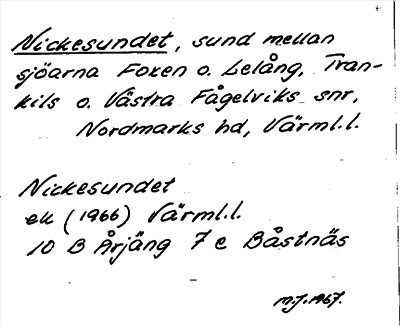 Nickesundet, sund mellan
sjöarna Foxen o. Lelång, Tran-
kils o. Västra Fågelviks snr,
Nordmarks hd, Värml.l.
Nickesundet
ek (1966) Värml.l.
10 B Årjäng 7 e Båstnäs
M.J. 1967.